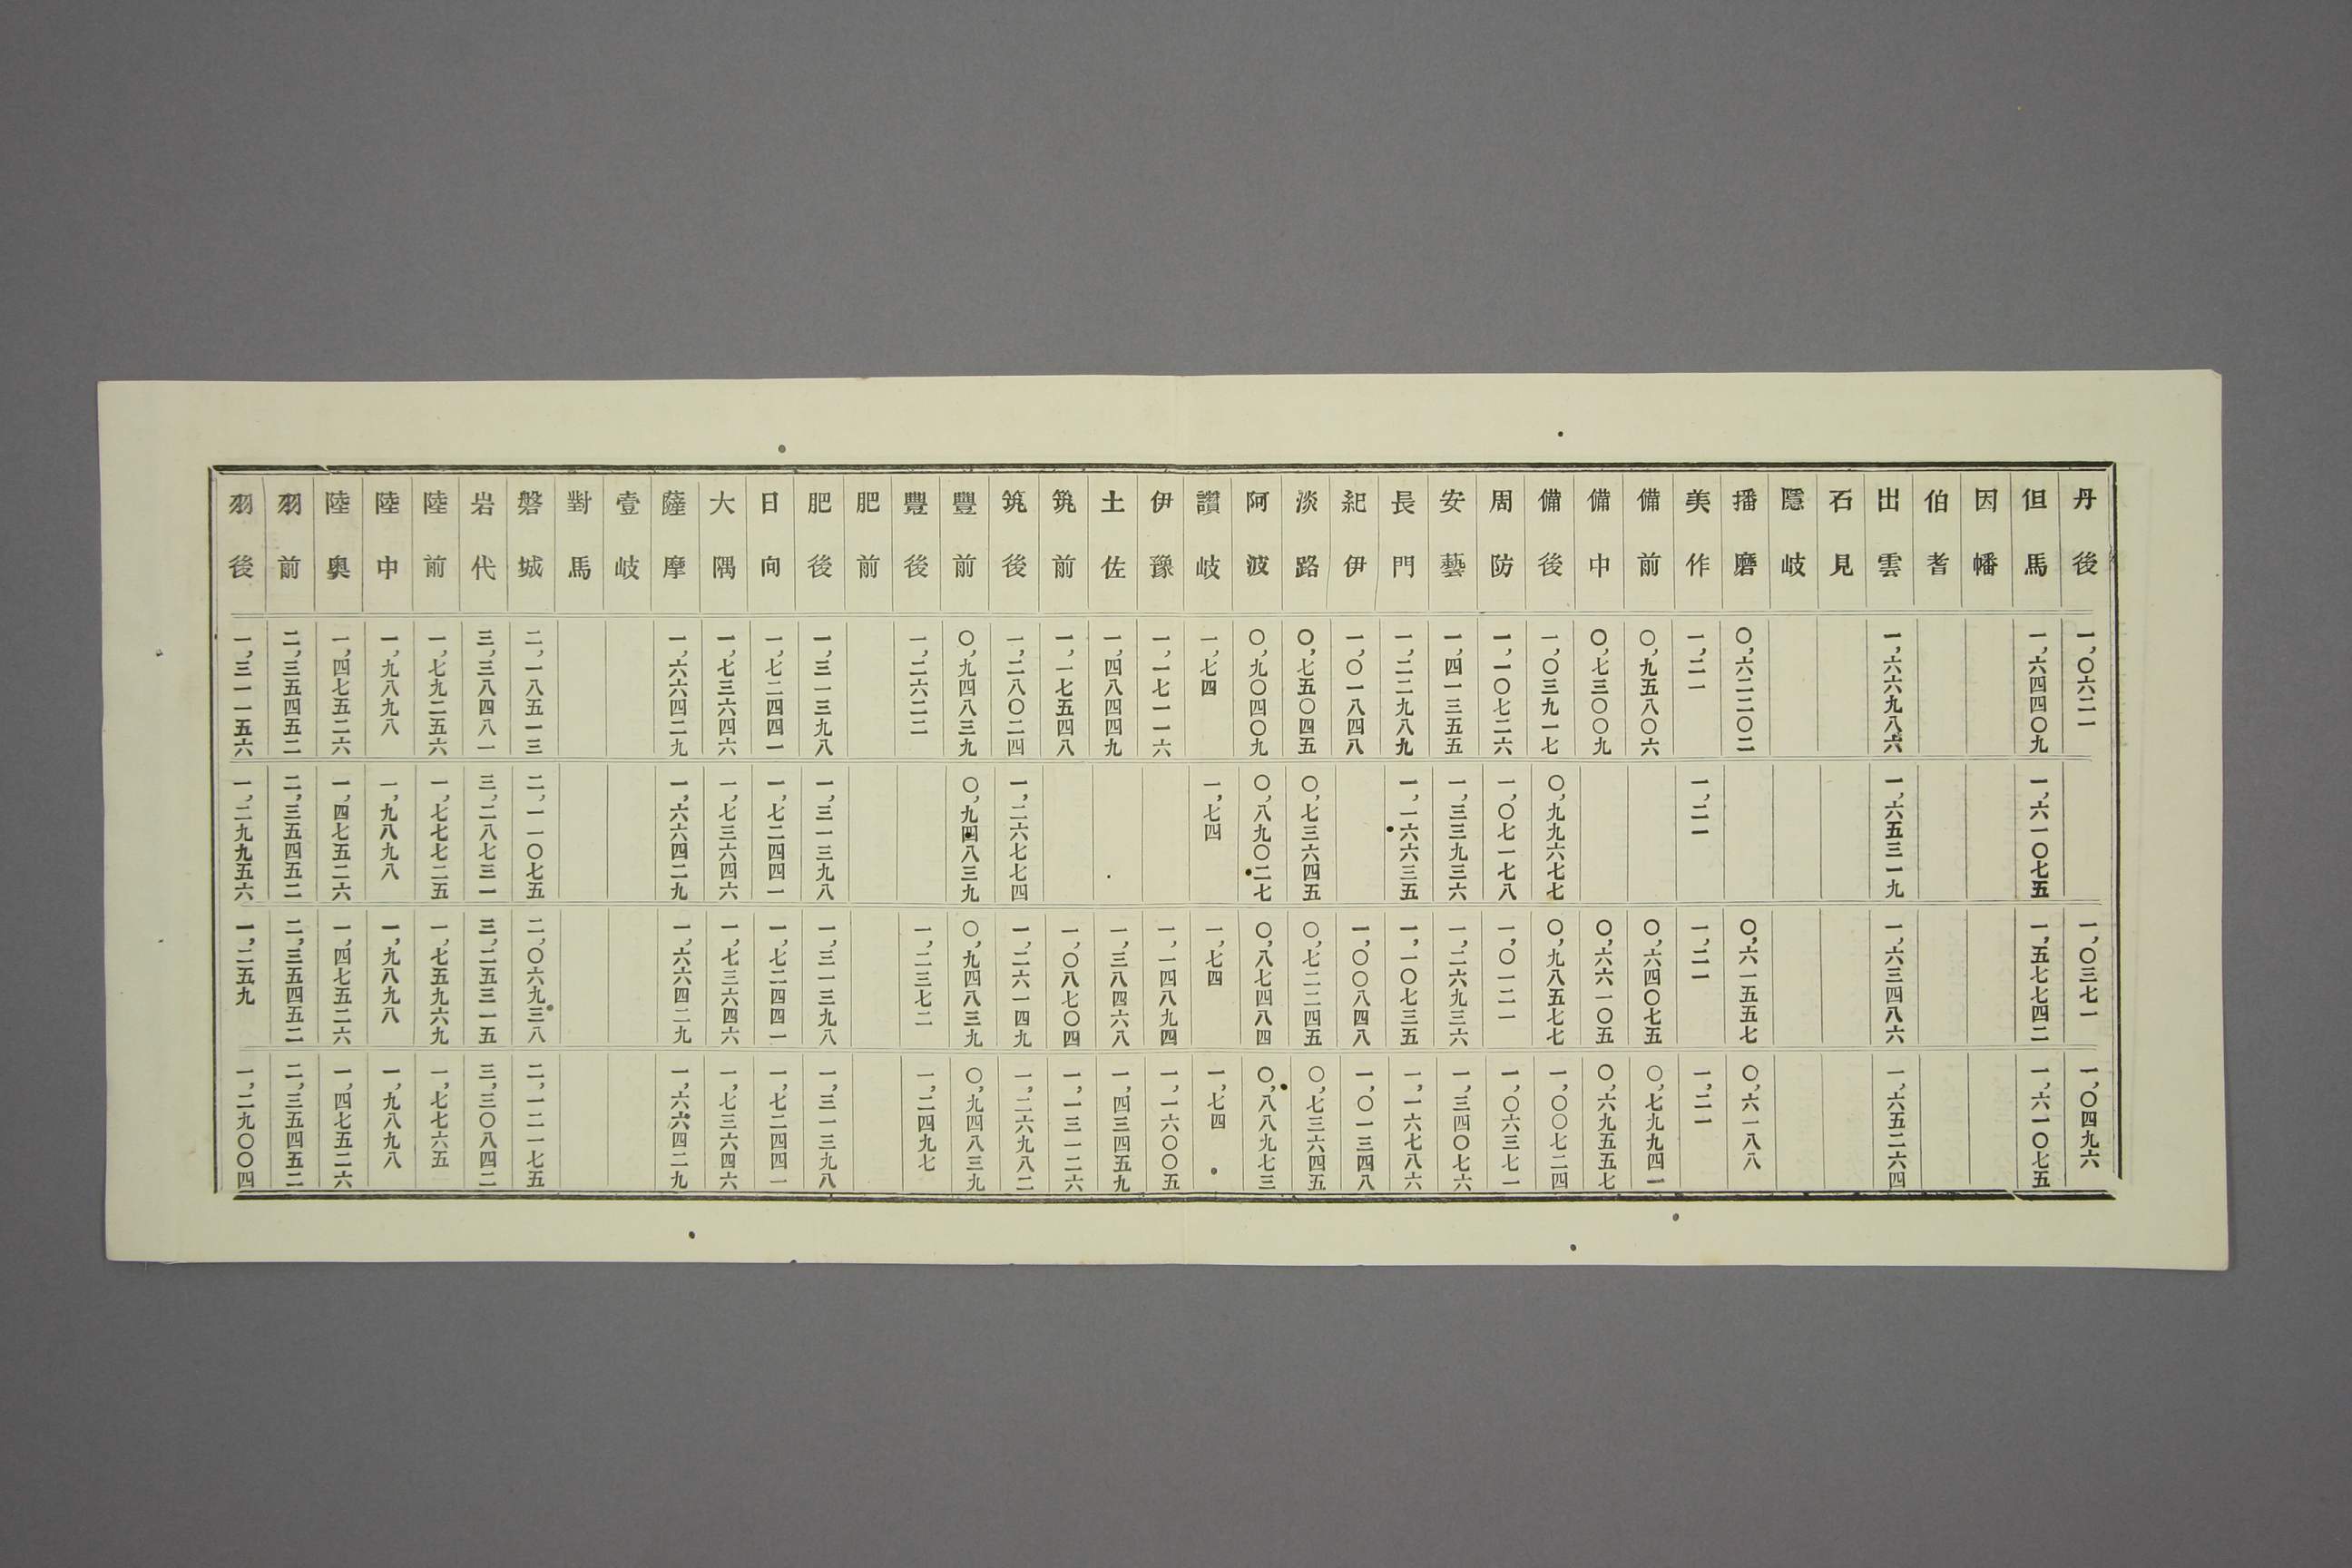 丹後 一,〇六二一 一,〇三七一 一,〇四九六
但馬 一,六四四〇九 一,六一〇七五 一,五七七四二 一,六一〇七五
因幡
伯耆
出雲 一,六六九八六 一,六五三一九 一,六三四八六 一,六五二六四
石見
隱岐
播磨 〇,六二二〇二 〇,六一五五七 〇,六一八八
美作 一,二一 一,二一 一,二一 一,二一
備前 〇,九五八〇六 〇,六四〇七五 〇,七九九四一
備中 〇,七三〇〇九 〇,六六一〇五 〇,六九五五七
備後 一,〇三九一七 〇,九九六七七 〇,九八五七七 一,〇〇七二四
周防 一,一〇七二六 一,〇七一七八 一,〇一二一 一,〇六三七一
安藝 一,四一三五五 一,三三九三六 一,二六九三六 一,三四〇七六
長門 一,二二九八九 一,一六六三五 一,一〇七三五 一,一六七八六
紀伊 一,〇一八四八 一,〇〇八四八 一,〇一三四八
淡路 〇,七五〇四五 〇,七三六四五 〇,七二二四五 〇,七三六四五
阿波 〇,九〇四〇九 〇,八九〇二七 〇,八七四八四 〇,八八九七三
讚岐 一,七四 一,七四 一,七四 一,七四
伊豫 一,一七一一六 一,一四八九四 一,一六〇〇五
土佐 一,四八四四九 一,三八四六八 一,四三四五九
筑前 一,一七五四八 一,〇八七〇四 一,一三一二六
筑後 一,二八〇二四 一,二六七七四 一,二六一四九 一,二六九八二
豐前 〇,九四八三九 〇,九四八三九 〇,九四八三九 〇,九四八三九
豐後 一,二六二二 一,二三七二 一,二四九七
肥前
肥後 一,三一三九八 一,三一三九八 一,三一三九八 一,三一三九八
日向 一,七二四四一 一,七二四四一 一,七二四四一 一,七二四四一
大隅 一,七三六四六 一,七三六四六 一,七三六四六 一,七三六四六
薩摩 一,六六四二九 一,六六四二九 一,六六四二九 一,六六四二九
壹岐
對馬
磐城 二,一八五一三 二,一一〇七五 二,〇六九三八 二,一二一七五
岩代 三,三八四八一 三,二八七三一 三,二五三一五 三,三〇八四二
陸前 一,七九二五六 一,七七七二五 一,七五九六九 一,七七六五
陸中 一,九八九八 一,九八九八 一,九八九八 一,九八九八
陸奧 一,四七五二六 一,四七五二六 一,四七五二六 一,四七五二六
羽前 二,三五四五二 二,三五四五二 二,三五四五二 二,三五四五二
羽後 一,三一一五六 一,二九九五六 一,二五九 一,二九〇〇四